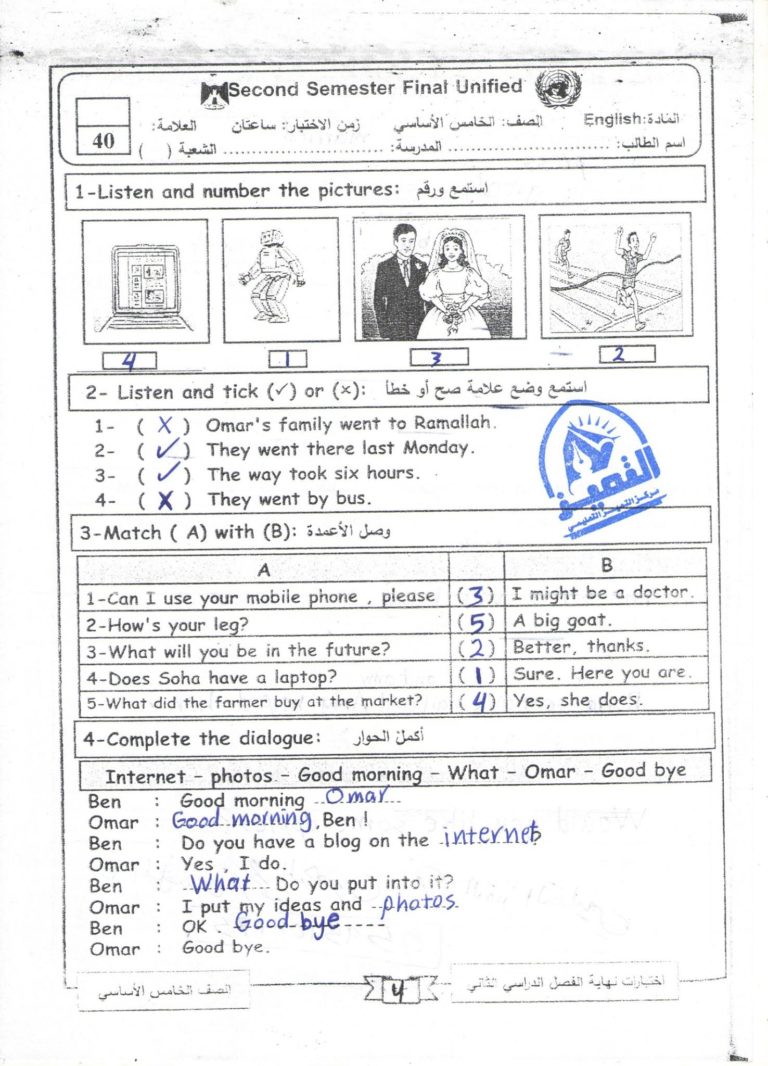 Second Semester Final Unified
المادة: English الصف: الخامس الأساسي زمن الاختبار: ساعتان العلامة:
40
اسم الطالب: ........................ المدرسة: ........................ الشعبة ( )
1-Listen and number the pictures: استمع ورقم
4 1 3 2
2- Listen and tick (✓) or (×): استمع وضع علامة صح أو خطأ
1- ( X ) Omar's family went to Ramallah.
2- ( ✓ ) They went there last Monday.
3- ( ✓ ) The way took six hours.
4- ( X ) They went by bus.
التميز
مركز التميز التعليمي
3-Match ( A) with (B): وصل الأعمدة
A B
1-Can I use your mobile phone , please (3) I might be a doctor.
2-How's your leg? (5) A big goat.
3-What will you be in the future? (2) Better, thanks.
4-Does Soha have a laptop? (1) Sure. Here you are.
5-What did the farmer buy at the market? (4) Yes, she does.
4-Complete the dialogue: أكمل الحوار
Internet - photos - Good morning - What - Omar - Good bye
Ben : Good morning Omar
Omar : Good morning, Ben !
Ben : Do you have a blog on the internet?
Omar : Yes , I do.
Ben : What Do you put into it?
Omar : I put my ideas and photos
Ben : OK . Good bye
Omar : Good bye.
الصف الخامس الأساسي 4 اختبارات نهاية الفصل الدراسي الثاني